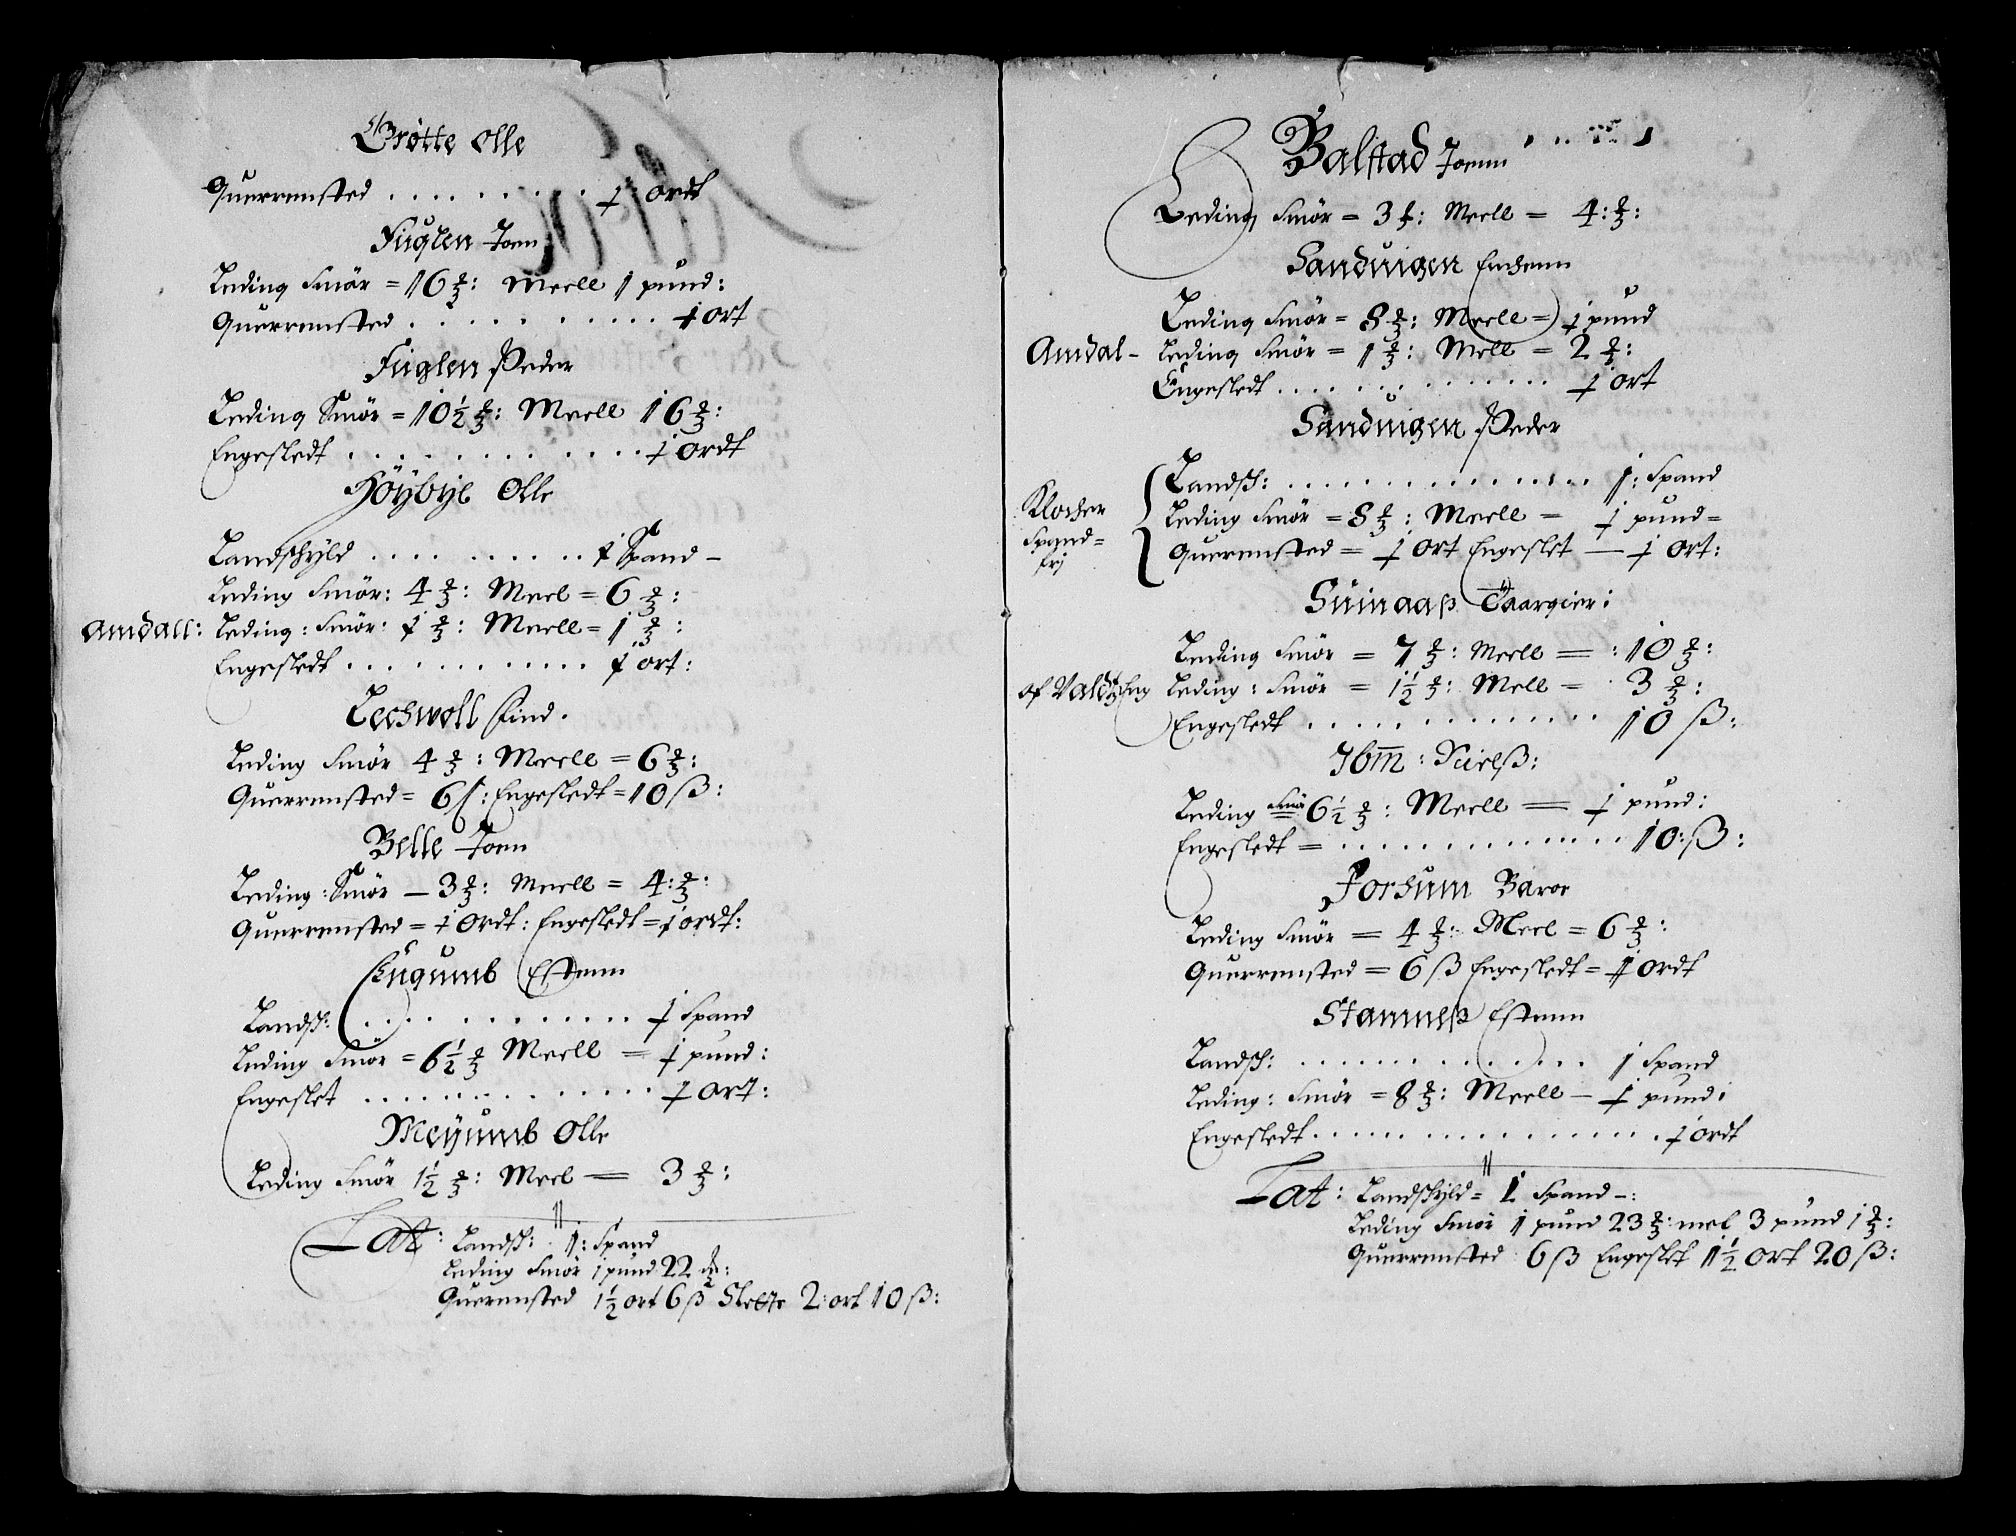 Grötte Olle
Querrensted . . . . . . . . . ɉ ordt
Fuglen Joen
Leding Smör = 16 ℔: Meell 1 pund:
Querrensted . . . . . . . . . ɉ ort
Fuglen Peder
Leding Smör = 10½ ℔: Meell 16 ℔:
Engesledt . . . . . . . . . . . ɉ ordt
Höybye Olle
Landschyld . . . . . . . . . ɉ Spand –
Leding Smör: 4 ℔: Meel = 6 ℔:
Amdall: Leding: Smör: ɉ ℔: Meell = 1 ℔:
Engesledt . . . . . . . . . . ɉ ort:
Lechwoll Find.
Leding Smör 4 ℔: Meell = 6 ℔:
Querrensted = 6 ß: Engesledt = 10 ß:
Belle Joen
Leding: Smör – 3 ℔: Meell = 4: ℔:
Querrensted = ɉ Ordt: Engesledt = ɉ ordt:
Engumb Estenn
Landsch: . . . . . . . . . . . . ɉ Spand
Leding Smör = 6½ ℔ Meell = ɉ pund:
Engeslet . . . . . . . . . . . . ɉ ort:
Meyumb Olle
Leding Smör 1½ ℔: Meel = 3 ℔:
Lat: Landsch: . 1: Spand
Leding Smör 1 pund 22 ℔:
Querrensted 1½ ort 6 ß Slette 2: ort 10 ß:
Balstad Joenn
Leding Smör = 3 ℔: Meell = 4: ℔:
Sanduigen Enchenn
Leding Smör = 8 ℔: Meell = ɉ pund
Amdal – Leding Smör = 1 ℔: Mell = 2 ℔:
Engesledt . . . . . . . . . . . . ɉ ort
Sanduigen Peder
Landsch: . . . . . . . . . . . . . 1: Spand
Klocher Leding Smör = 8 ℔: Meell = ɉ pund =
Spand = Querrensted = ɉ Ort Engeslet – ɉ Ort:
frj
Suinaaß Taargier:
Leding Smör = 7 ℔: Meell = : 10 ℔:
of Valdß Eng Leding: Smör = 1½ ℔: Mell = 3 ℔:
Engesledt . . . . . . . . . . . . 10 ß:
Ibm: Nielß:
Leding Smör 6½ ℔: Meell = ɉ pund:
Engesledt = . . . . . . . . . . . 10: ß:
Forchum Baror
Leding Smör = 4 ℔: Meel = 6 ℔:
Querrensted = 6 ß Engesledt = 1 ordt
Stamneß Estenn
Landsch: . . . . . . . . . . . . 1 Spand
Leding: Smör = 8 ℔: Meell – ɉ pund:
Engesledt . . . . . . . . . . . . . ɉ ordt
Lat: Landschyld = 1 Spand –:
Leding Smör 1 pund 23 ℔: mel 3 pund 1 ℔:
Querrensted 6 ß Engeslet 1½ Ort 20 ß: